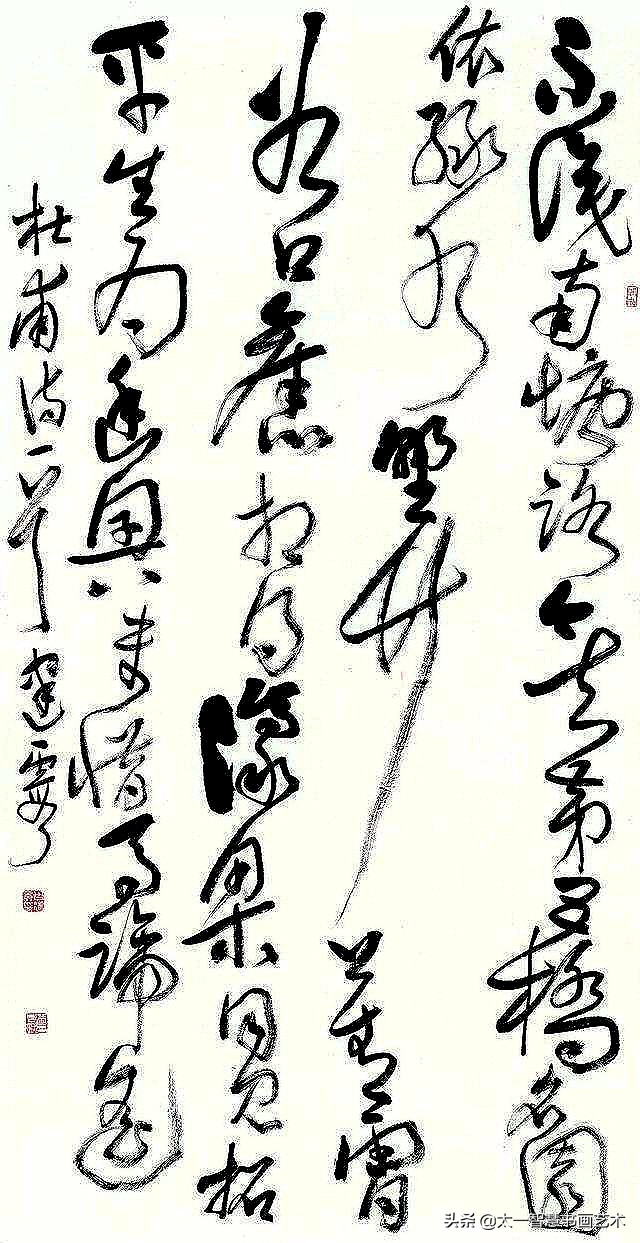 不識南塘路今知第五橋名園
依綠水野竹上青霄
谷口舊相得濠梁同見招
平生為幽興未惜馬蹄遙
杜甫诗一首
头条 @太一智慧书画艺术